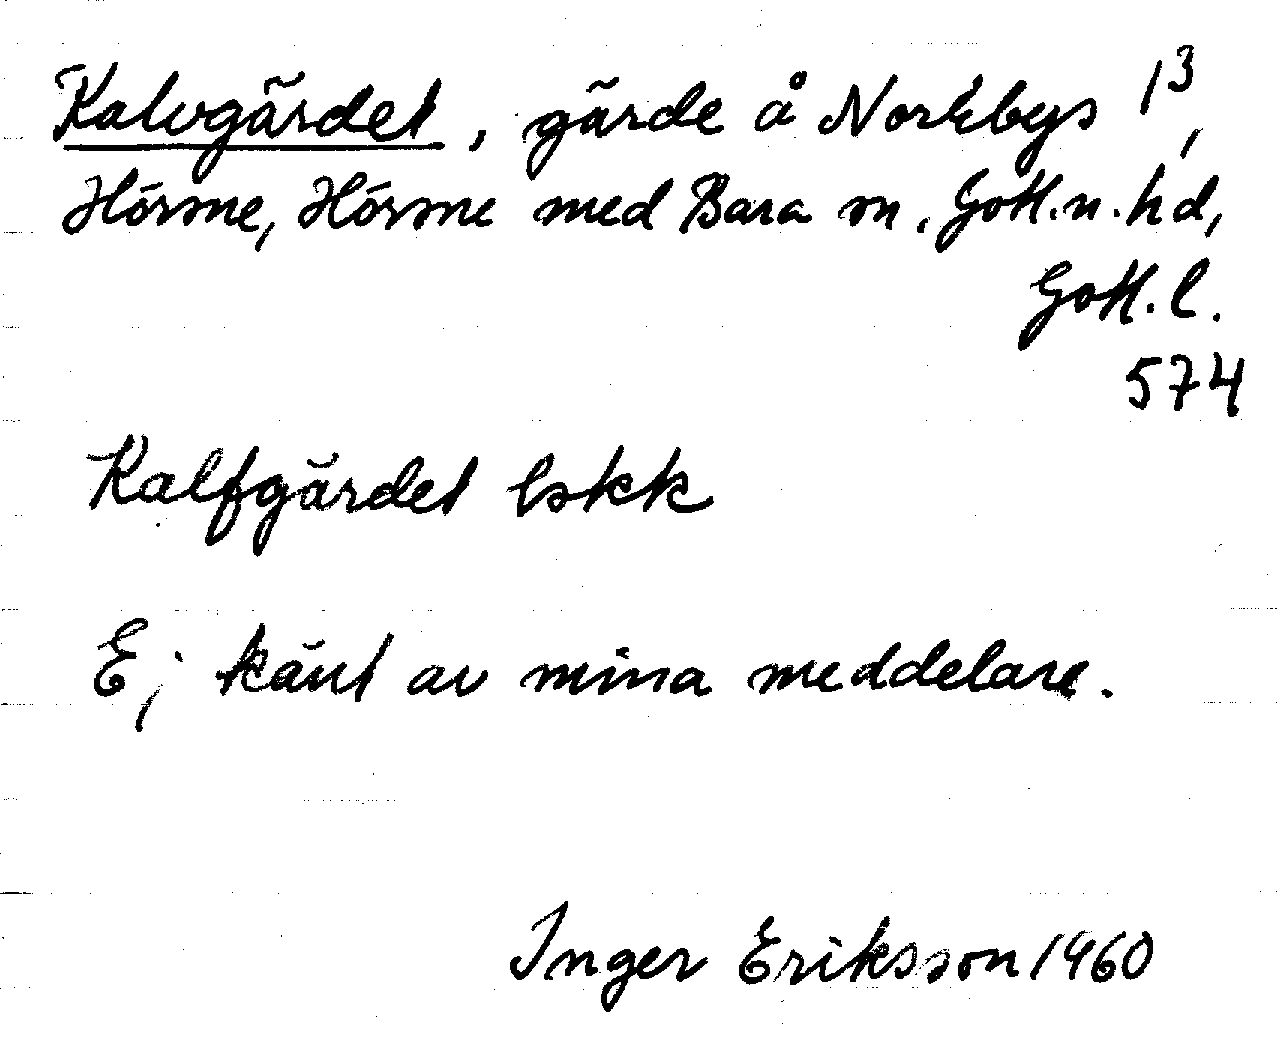 Kalvgärdet, gärde å Norrbys 1³,
Hörsne, Hörsne med Bara sn, Gotl.n.hd,
Gotl.l.
574
Kalfgärdet lskk
Ej känt av mina meddelare.
Inger Eriksson 1960